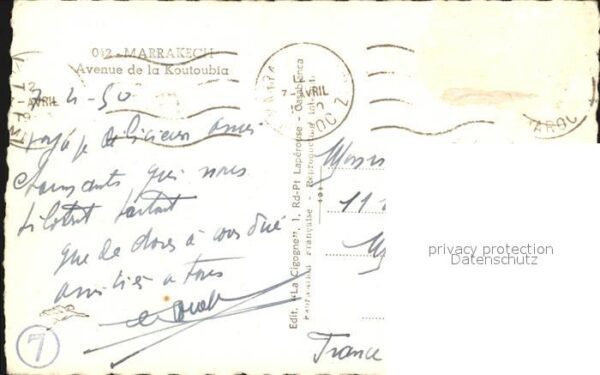 042 - MARRAKECH
Avenue de la Koutoubia
7-4-50
voyage délicieux amis
charmants qui nous
pilotent partout
que de choses à vous dire
amitiés à tous
7- AVRIL
AVRIL
MAROC
Edit. "La Cigogne", 1, Rd-Pt Lapérouse - Casablanca
Fabrication Française - Reproduction Interdite
11
France
privacy protection
Datenschutz
7